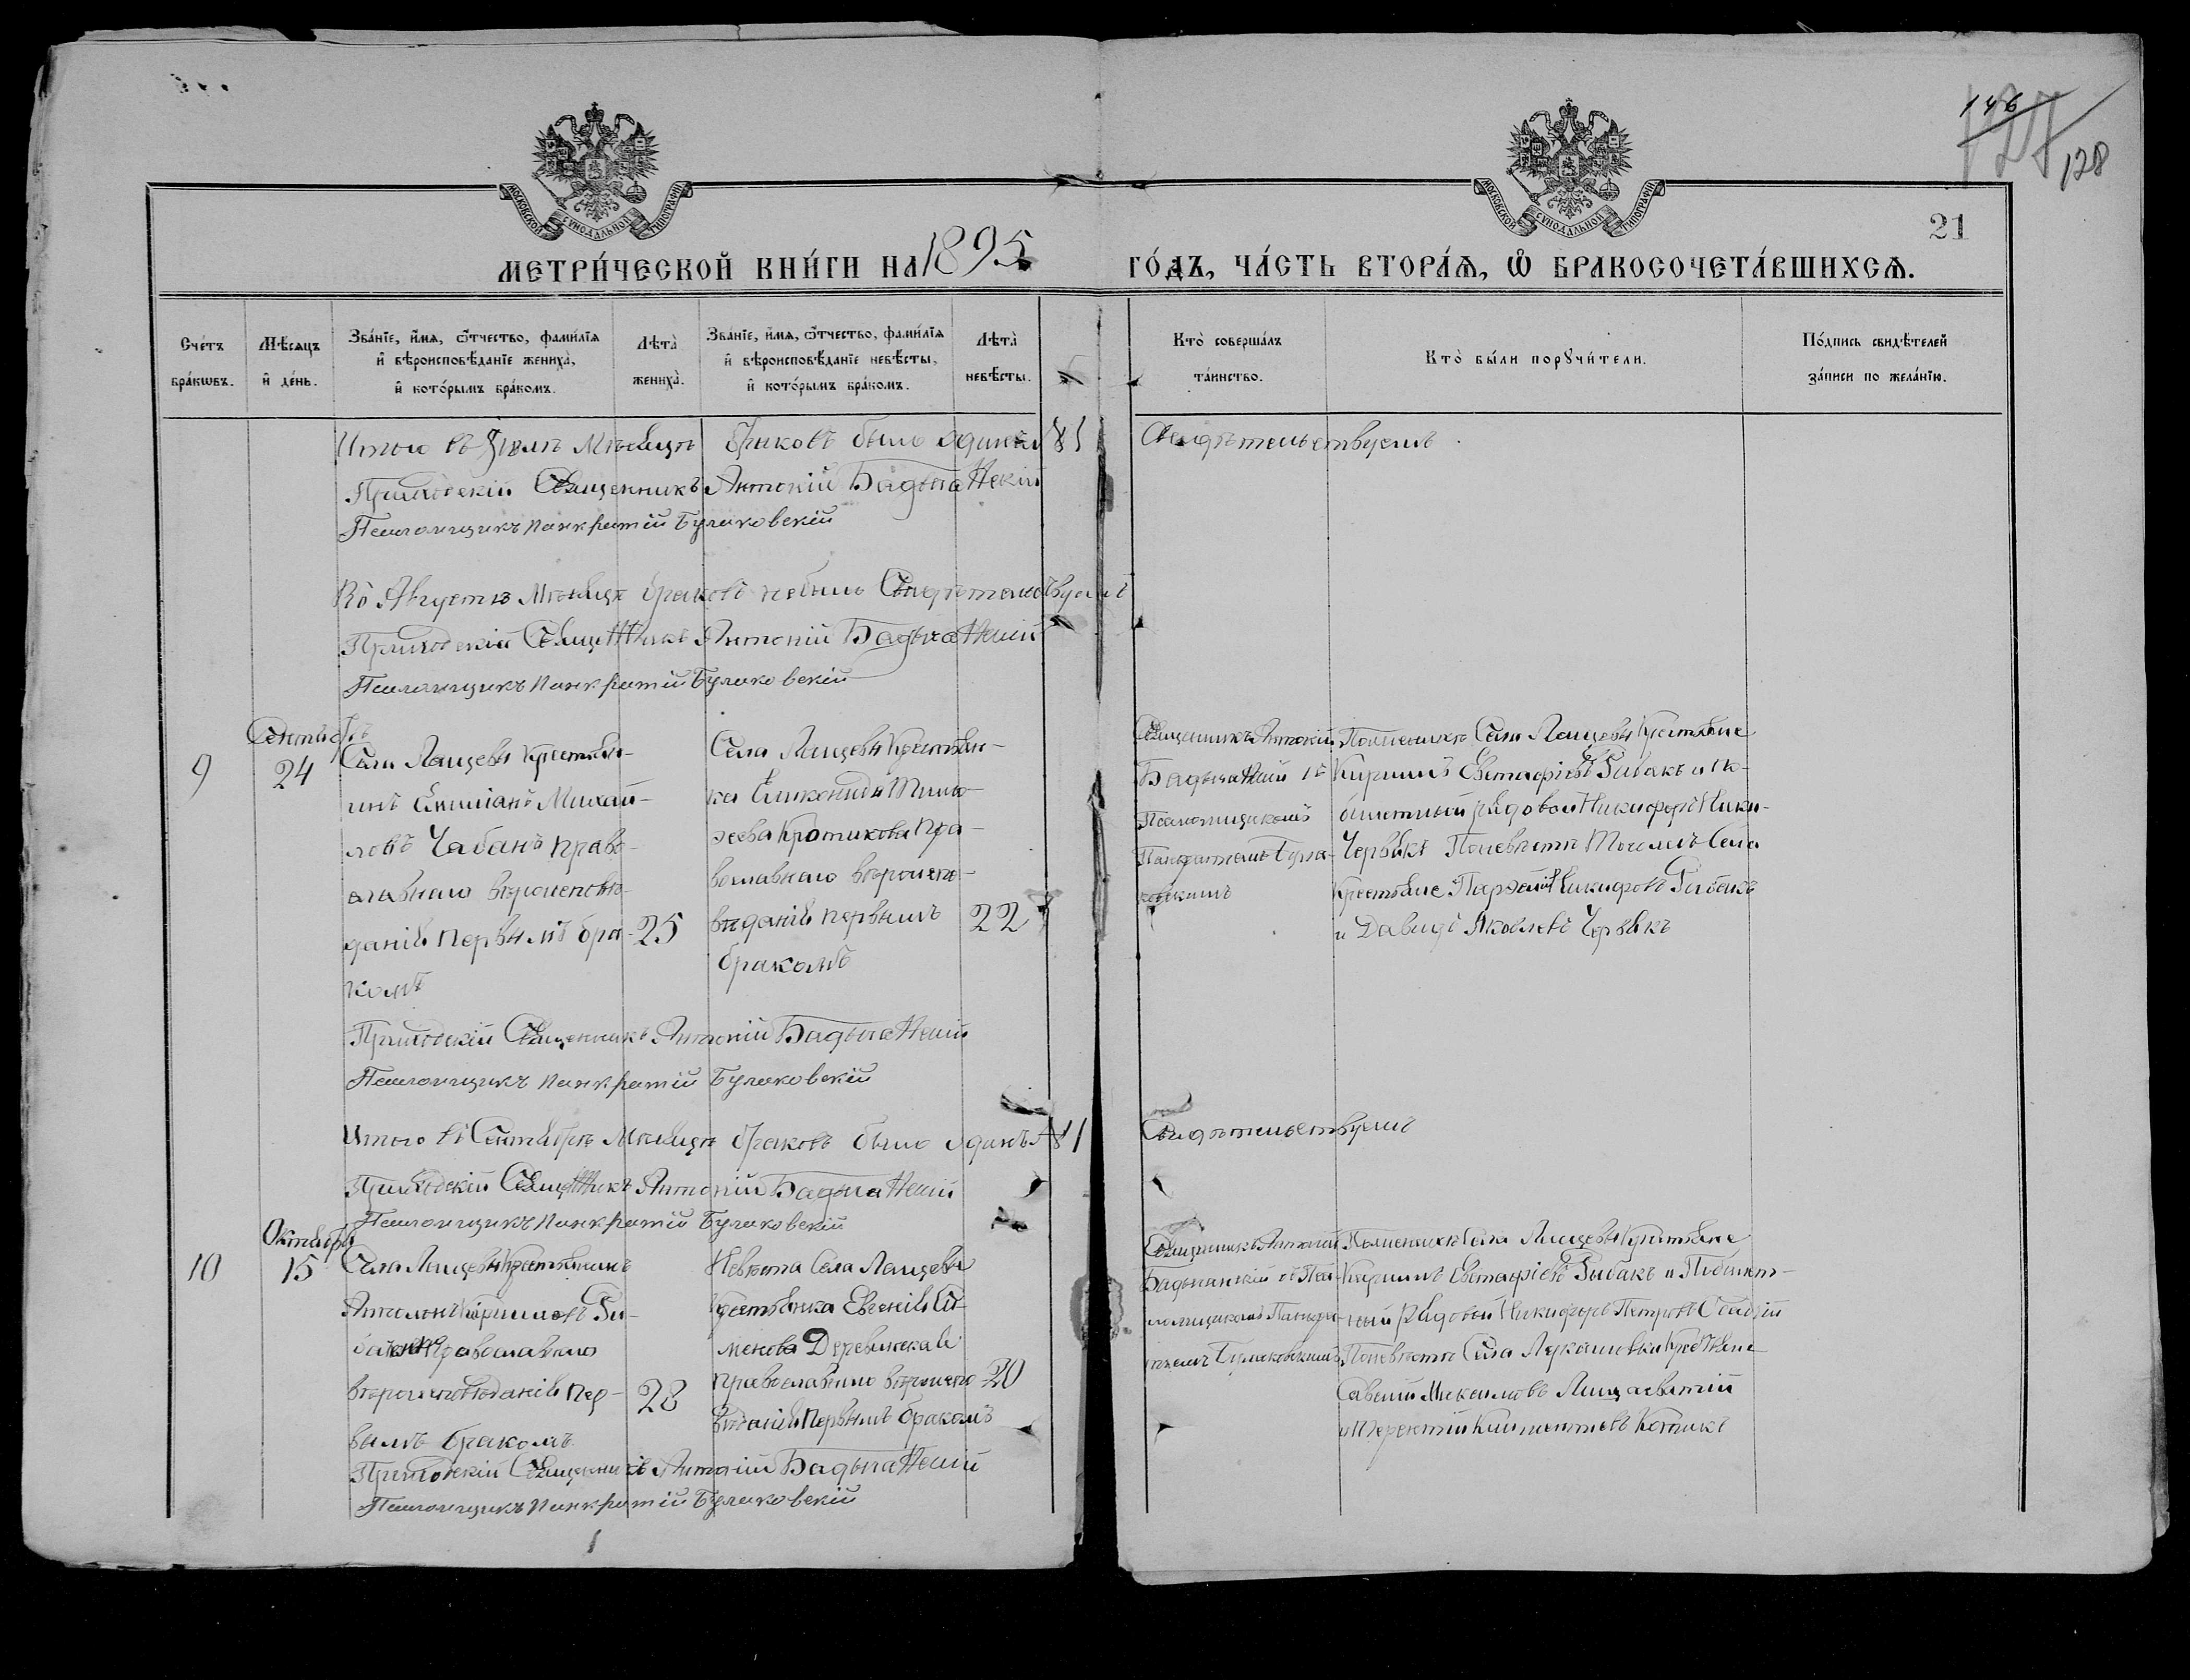 146
127
128
МОСКОВСКОЙ СѴНОДАЛЬНОЙ ТИПОГРАФІИ
МОСКОВСКОЙ СѴНОДАЛЬНОЙ ТИПОГРАФІИ
21
МЕТРИ́ЧЕСКОЙ КНИ́ГИ НА 1895 ГО́ДЪ, ЧА́СТЬ ВТОРА́Ѧ, Ѽ БРАКОСОЧЕТА́ВШИХСѦ.
Сче́тъ бра́кѡвъ.
Мѣ́сѧцъ и҆ де́нь.
Зва́нїе, и҆́мѧ, ѻ҆́тчество, фами́лїѧ и҆ вѣроисповѣ́данїе жениха̀, и҆ кото́рымъ бра́комъ.
Лѣта̀ жениха̀.
Зва́нїе, и҆́мѧ, ѻ҆́тчество, фами́лїѧ и҆ вѣроисповѣ́данїе невѣ́сты, и҆ кото́рымъ бра́комъ.
Лѣта̀ невѣ́сты.
Кто̀ соверша́лъ та́инство.
Кто̀ бы́ли порꙋчи́тели.
По́дпись свидѣ́телей за́писи по жела́нїю.
Итого въ Іюлѣ Мѣсяцѣ браковъ было одинъ 1 Свидѣтельствуемъ.
Приходскій Священникъ Антоній
Псаломщикъ Панкратій Булаковскій
Въ Августѣ Мѣсяцѣ браковъ небыло Свидѣтельствуемъ
Приходскій Священникъ Антоній
Псаломщикъ Панкратій Булаковскій
Сентябрь
9
24
Села Лащевы Крестьян-
инъ Емиліанъ Михай-
ловъ Чабанъ право-
славнаго вѣроисповѣ-
данія первымъ бра-
комъ
25
Села Лащевы Крестьян-
ка
Кротикова пра-
вославнаго вѣроиспо-
вѣданія первымъ
бракомъ
22
Священникъ Антоній
съ
Псаломщикомъ
Панкратіемъ Була-
ковскимъ
Поженихѣ Села Лащевы Крестьяне
Кириллъ Евстафіевъ Рыбакъ и
билетный рядовой Никифоръ
Червякъ Поневѣстѣ Тогожъ Села
Крестьяне Никифоровъ Рыбакъ
и Давидъ Яковлевъ Червякъ
Приходскій Священникъ Антоній
Псаломщикъ Панкратій Булаковскій
Итого въ Сентябрѣ Мѣсяцѣ браковъ было одинъ 1 Свидѣтельствуемъ
Приходскій Священникъ Антоній
Псаломщикъ Панкратій Булаковскій
Октябрь
10
15
Села Лащевы Крестьянинъ
Кирилловъ Ры-
бакъ Православнаго
вѣроисповѣданія пер-
вымъ бракомъ
28
Невѣста Села Лащевы
Крестьянка Евгенія Си-
менова Деревинская
православнаго вѣроиспо-
вѣданія Первымъ бракомъ
20
Священникъ Антоній
съ Пса-
ломщикомъ Панкра-
тіемъ Булаковскимъ
Поженихѣ Села Лащевы Крестьяне
Кириллъ Евстафіевъ Рыбакъ и Побилет-
ный Рядовой Никифоръ Петровъ
Поневѣстѣ Села Лукашевки Крестьяне
Михайловъ
и Терентій Климентіевъ Котикъ
Приходскій Священникъ Антоній
Псаломщикъ Панкратій Булаковскій